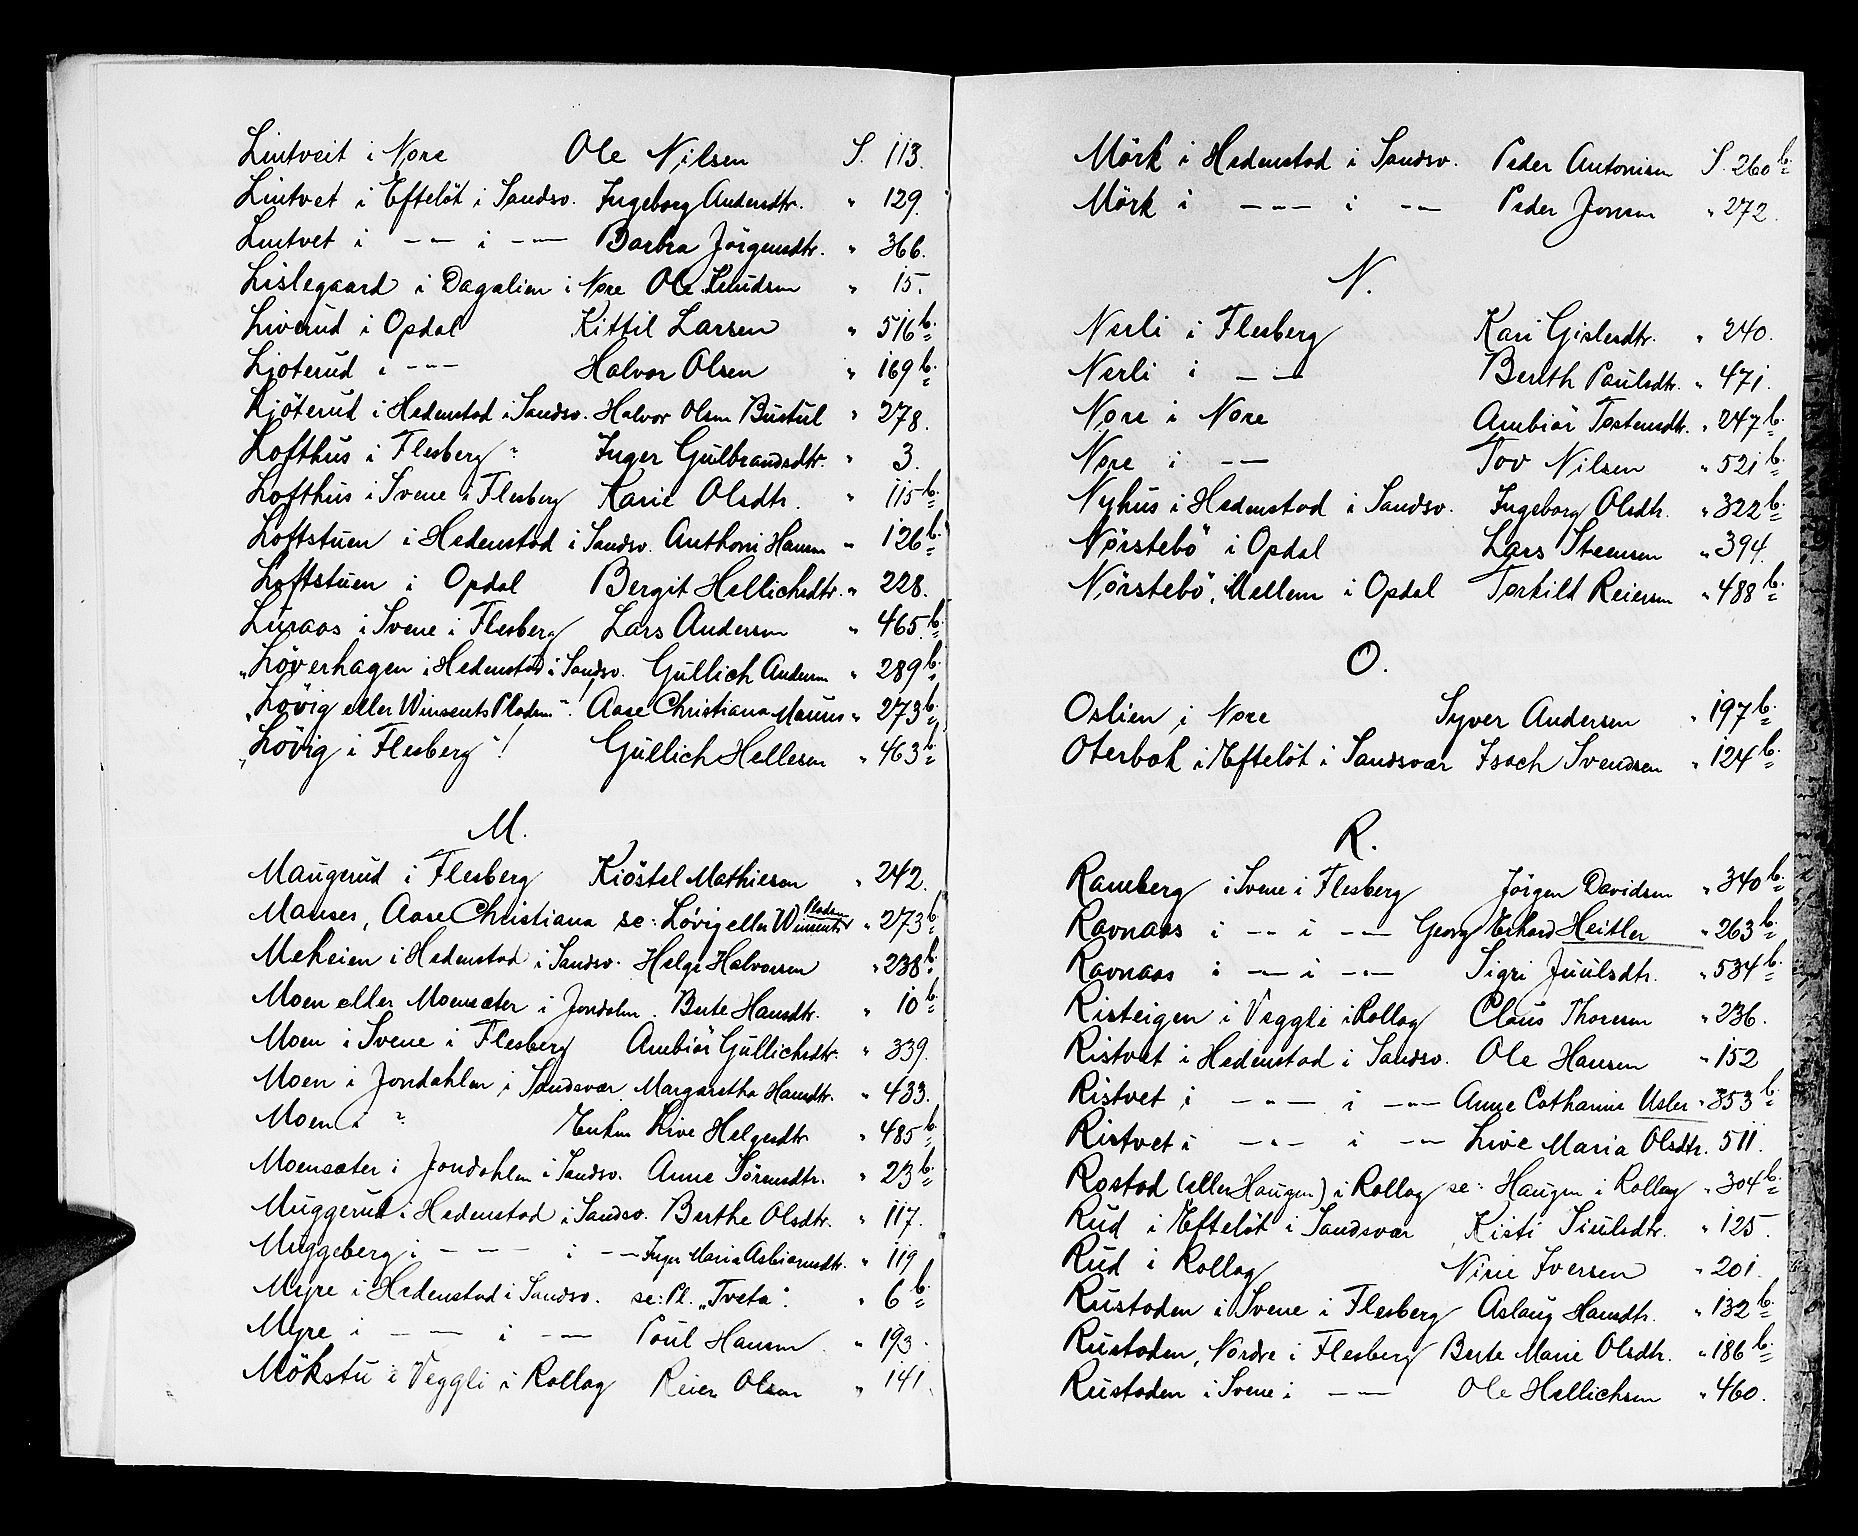 Lintveit i Nore Ole Nilsen S. 113.
Lintvet i Efteløt i Sandsv. Ingeborg Andersdtr. " 129.
Lintvet i - - - i - - - Barbra Jörgensdtr. " 366.
Lislegaard i Dagalien i Nore Ole Knudsen " 15.
Liverud i Opdal Kittil Larsen " 516 b.
Ljoterud i - - - Halvor Olsen " 169 b.
Kjöterud i Hedenstad i Sandsv. Halvor Olsen Bustul " 278.
Lofthus i Flesberg " Inger Gulbrandsdtr. " 3.
Lofthus i Svene i Flesberg Karie Olsdtr. " 115 b.
Loftstuen i Hedenstad i Sandsv. Anthoni Hansen " 126 b.
Loftstuen i Opdal Bergit Hellichsdtr. " 228.
Luraas i Svene i Flesberg Lars Andersen " 465 b.
"Löverhagen i Hedenstad i Sandsv. Gullich Andersen " 289 b.
"Lövig eller Winsents Pladsen". Aase Christiana Mauses " 273 b.
"Lövig i Flesberg"! Gullich Hellesen " 463 b.
M.
Maugerud i Flesberg Kiöstel Mathiesen " 242.
Mauses, Aase Christiana se: Lövig eller Winsents Pladsen " 273 b.
Meheien i Hedenstad i Sandsv. Helge Halvorsen " 238 b.
Moen eller Moensæter i Jondalen. Berte Hansdtr. " 10 b.
Moen i Svene i Flesberg Ambiör Gullichsdtr. " 339.
Moen i Jondahlen i Sandsvær. Margaretha Hansdtr. " 433.
Moen i " Enken Live Helgesdtr " 485 b.
Moensæter i Jondahlen i Sandsv. Anne Sörensdtr. " 23 b.
Muggerud i Hedenstad i Sandsv. Berthe Olsdtr. " 117.
Muggeberg i - - - i - - Inger Maria Asbiørnsdtr. " 119
Myre i Hedenstad i Sandsv. se: Pl. "Tveta". " 6 b.
Myre i - - - i - - - Poul Hansen " 193.
Mökstu i Veggli i Rollag Reier Olsen " 141.
Mörk i Hedenstad i Sandsv. Peder Antonisen S. 260 b.
Mörk i - - - i - - Peder Jonsen " 272.
N.
Nerli i Flesberg Kari Gislesdtr. " 240.
Nerli i - - - Berth Paulsdtr. " 471.
Nore i Nore Ambiör Tostensdtr. " 247 b.
Nore i - - Tov Nilsen " 521 b.
Nyhus i Hedenstad i Sandsv. Ingeborg Olsdtr. " 322 b.
Nörstebö i Opdal Lars Steensen " 394.
Nörstebö, Mellem i Opdal Torkild Reiersen " 488 b.
O.
Oslien i Nore Syver Andersen " 197 b.
Oterbæk i Efteløt i Sandsvær Isach Svendsen " 124 b.
R.
Ramberg i Svene i Flesberg Jörgen Davidsen " 340 b.
Ravnaas i - - i - - - Georg Erhard Heitler " 263 b.
Ravnaas i - - - i - - - Sigri Juulsdtr. " 534 b.
Risteigen i Veggli i Rollag Claus Thoresen " 236.
Ristvet i Hedenstad i Sandsv. Ole Hansen " 152
Ristvet i - - - i - - - Anne Catharine Usler " 353 b.
Ristvet i - - - i - - - Live Maria Olsdtr. 511.
Rostad (eller Haugen) i Rollag se: Haugen i Rollag " 304 b.
Rud i Efteløt i Sandsvær Kisti Siulsdtr. " 125.
Rud i Rollag Nirie Iversen " 201.
Rustaden i Svene i Flesberg Aslaug Hansdtr. " 132 b.
Rustaden, Nordre i Flesberg Berte Marie Olsdtr. " 186 b.
Rustaden i Svene i - - - Ole Hellichsen " 460.